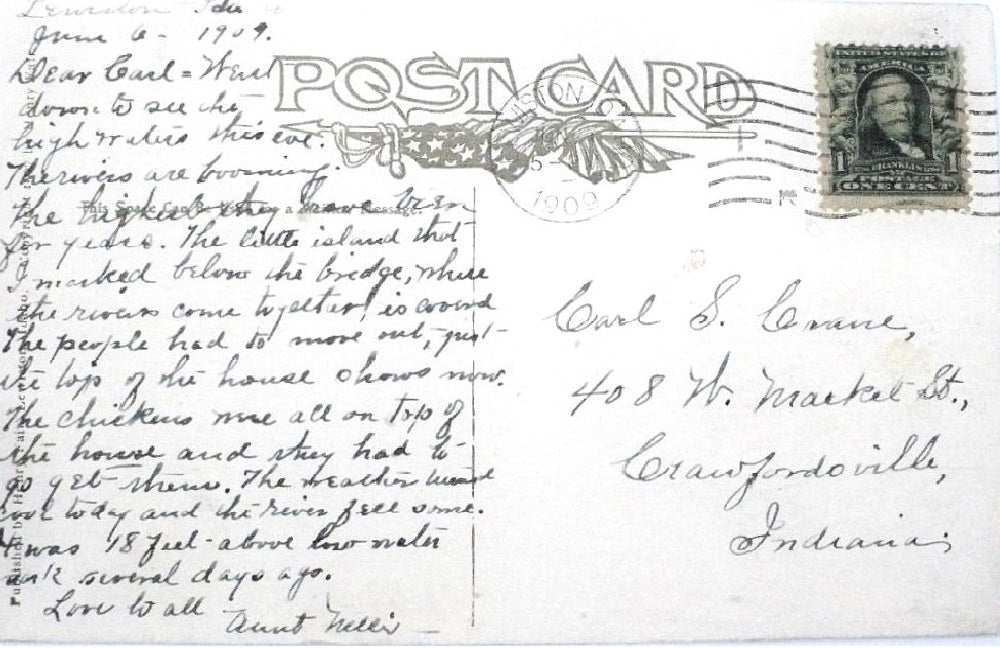 Lewiston Ida
June 6 - 1909.
Dear Carl = Went
down to see the
high waters this eve.
The rivers are booming.
The highest they have been
for years. The little island that
I marked below the bridge, where
the rivers come together, is covered
The people had to move out, just
the top of the house shows now.
The chickens were all on top of
the house and they had to
go get them. The weather turned
cool today and the river fell some.
It was 18 feet above low water
mark several days ago.
Love to all
Aunt Nelli
POST CARD
This Space Can be a Message.
Published by
JUN
1909
FRANKLIN
1 1
ONE CENT
Carl S. Crane,
408 W. Market St.,
Crawfordsville,
Indiana;